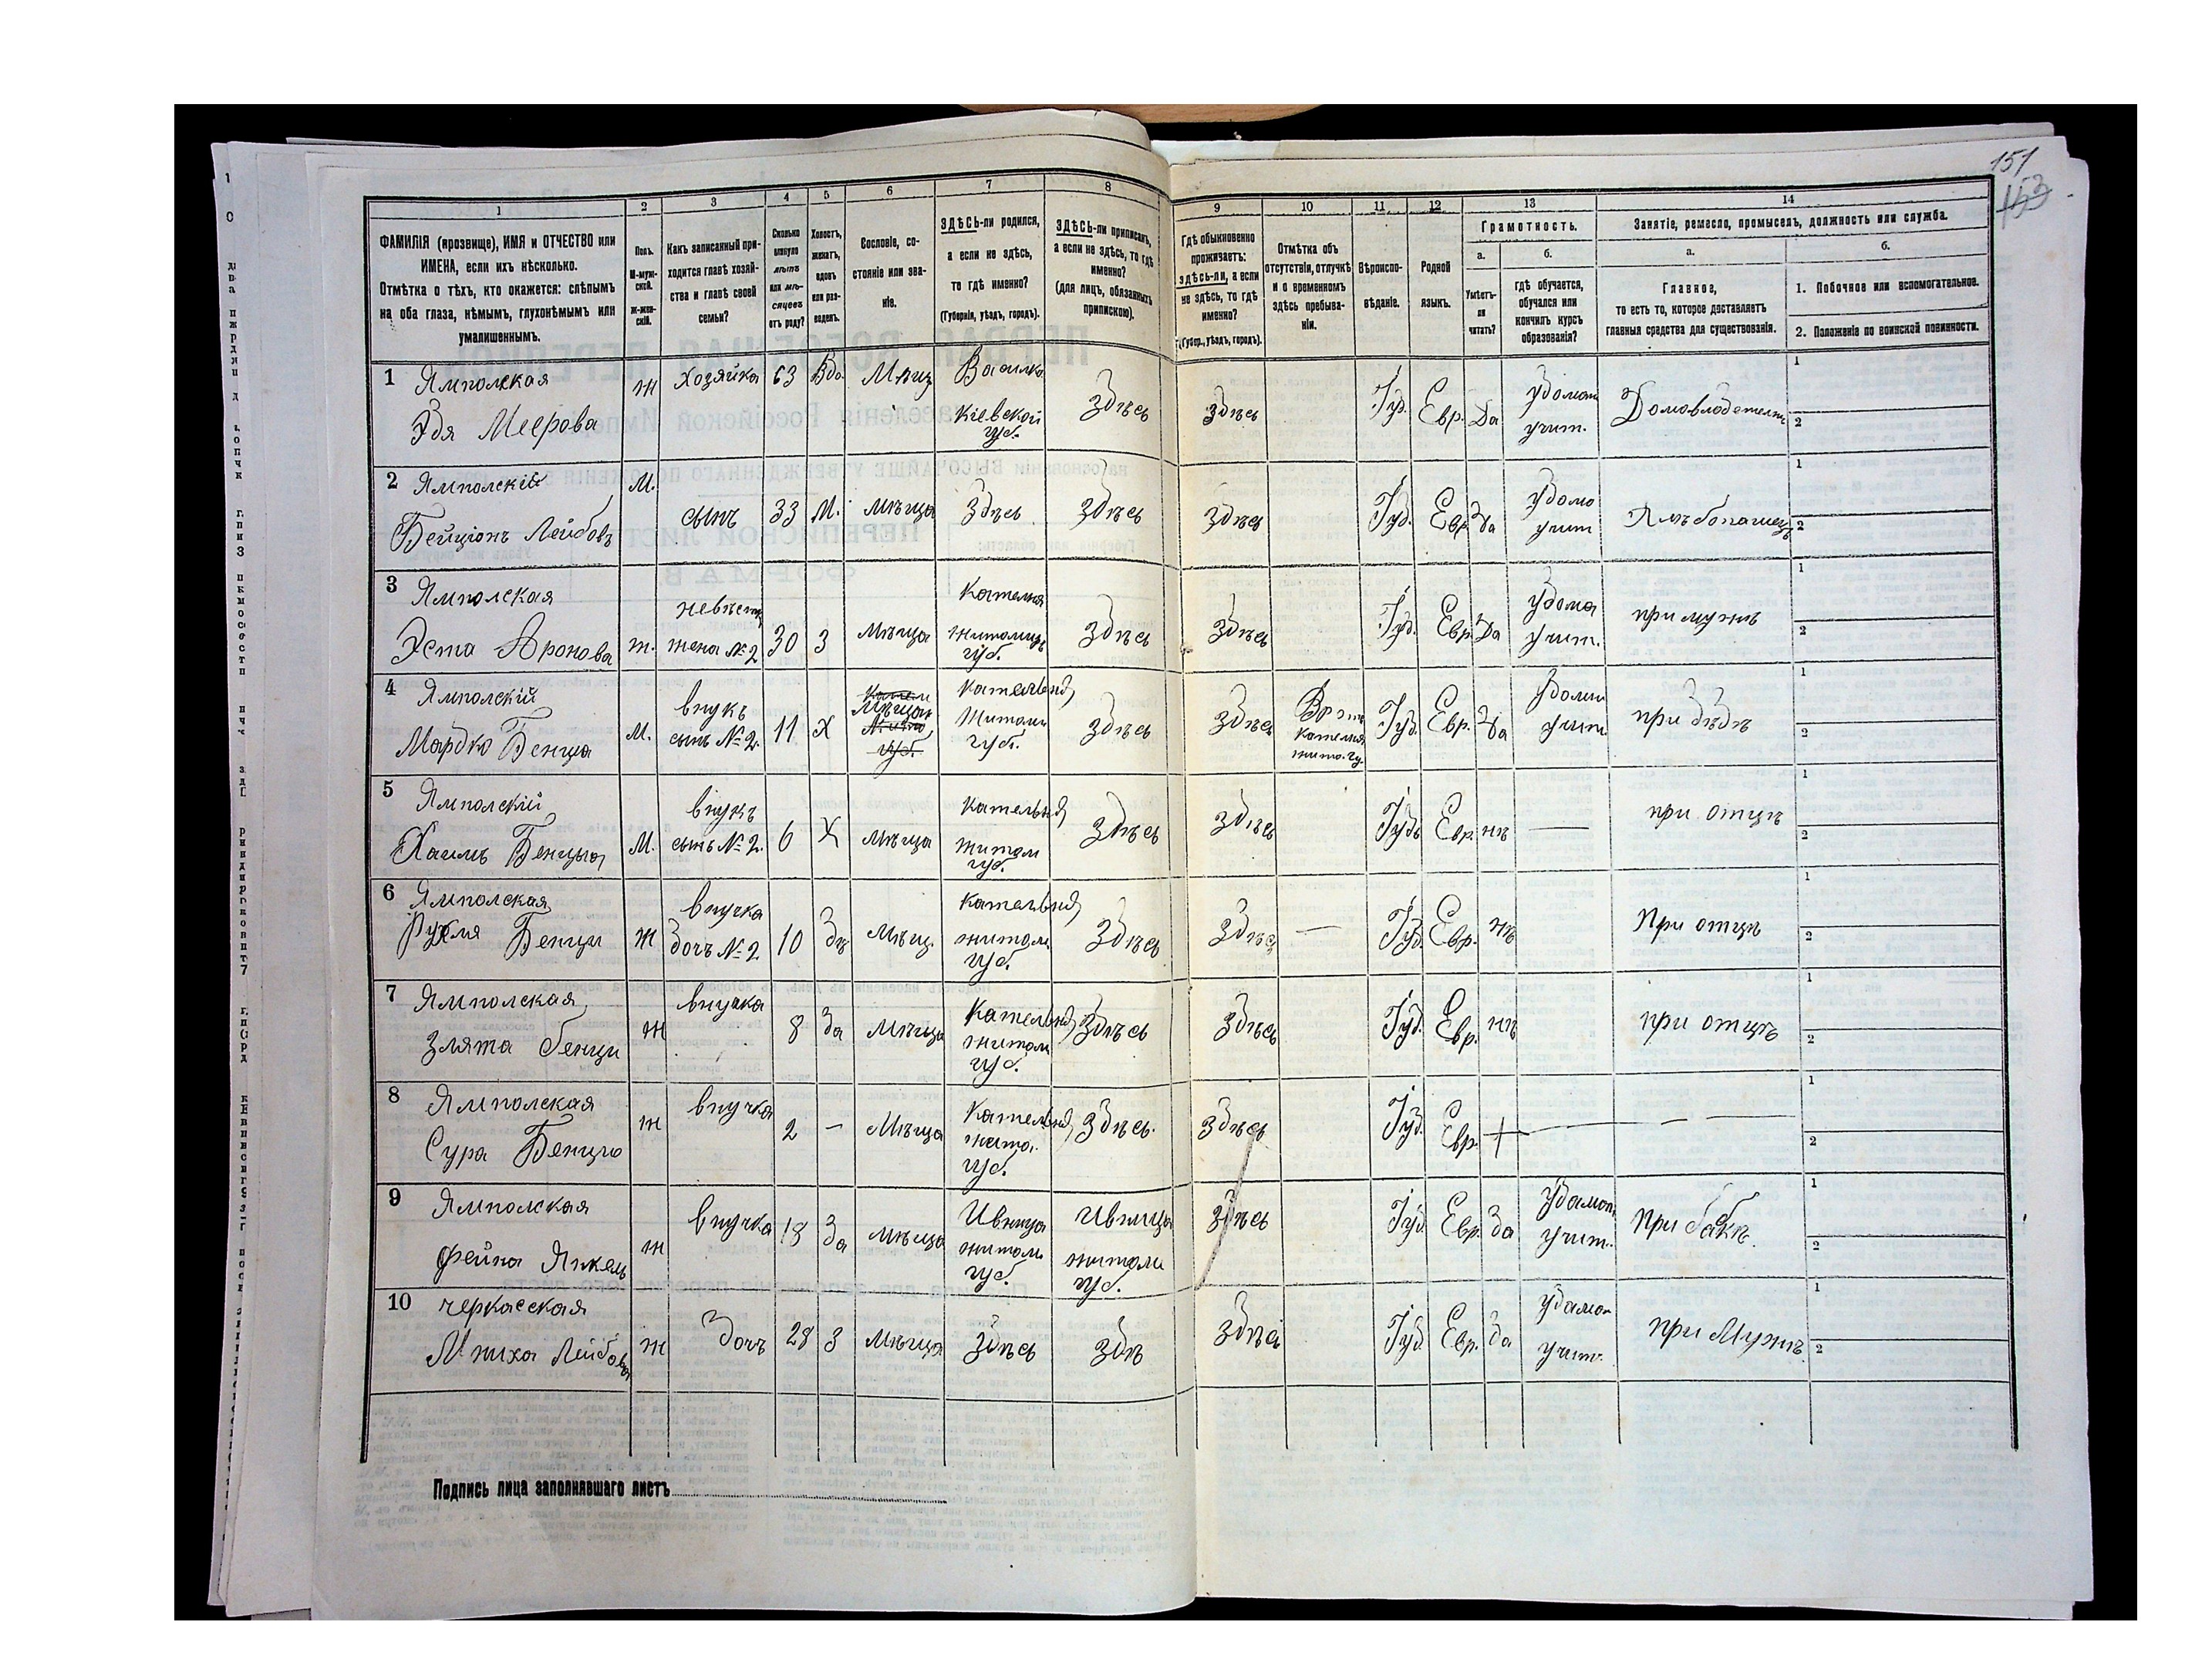 151
153
1
2
3
4
5
6
7
8
9
10
11
12
13
14
ФАМИЛІЯ (прозвище), ИМЯ и ОТЧЕСТВО или
ИМЕНА, если ихъ нѣсколько.
Отмѣтка о тѣхъ, кто окажется: слѣпымъ
на оба глаза, нѣмымъ, глухонѣмымъ или
умалишеннымъ.
Полъ.
М-муж-
ской.
Ж-жен-
скій.
Какъ записанный при-
ходится главѣ хозяй-
ства и главѣ своей
семьи?
Сколько
минуло
лѣтъ
или мѣ-
сяцевъ
отъ роду?
Холостъ,
женатъ,
вдовъ
или раз-
веденъ.
Сословіе, со-
стояніе или зва-
ніе.
ЗДѢСЬ-ли родился,
а если не здѣсь,
то гдѣ именно?
(Губернія, уѣздъ, городъ).
ЗДѢСЬ-ли приписанъ,
а если не здѣсь, то гдѣ
именно?
(для лицъ, обязанныхъ
припискою).
Гдѣ обыкновенно
проживаетъ:
здѣсь-ли, а если
не здѣсь, то гдѣ
именно?
(Губер., уѣздъ, городъ).
Отмѣтка объ
отсутствіи, отлучкѣ
и о временномъ
здѣсь пребыва-
ніи.
Вѣроиспо-
вѣданіе.
Родной
языкъ.
Грамотность.
а.
б.
Умѣетъ-
ли
читать?
гдѣ обучается,
обучался или
кончилъ курсъ
образованія?
Занятіе, ремесло, промыселъ, должность или служба.
а.
б.
Главное,
то есть то, которое доставляетъ
главныя средства для существованія.
1. Побочное или вспомогательное.
2. Положеніе по воинской повинности.
1 Ямполская
Эдя Меерова
Ж
Хозяйка
63
Вдо.
Мѣщ
Кіевской
губ.
здѣсь
здѣсь
Іуд.
Евр.
Да
учит.
1
2
2 Ямполскій
Бейціонъ Лейбовъ
М.
сынъ
33
М.
мѣща
Здѣсь
Здѣсь
здѣсь
Іуд.
Евр.
Да
удомо
учит
1
2
3 Ямполская
Эста Аронова
ж.
невѣст
жена №2
30
З
мѣща
Кателня
губ.
здѣсь
здѣсь
Іуд.
Евр.
Да
удома
учит.
при мужѣ
1
2
4 Ямполскій
Мардко Бенція
М.
внукъ
сынъ №2.
11
Х
губ.
Житоми
губ.
здѣсь
здѣсь
Кателня
жито. гу.
Іуд.
Евр.
Да
учит.
при дѣдѣ
1
2
5 Ямполскій
Хаимъ Бенція
М.
внукъ
сынъ №2.
6
Х
мѣща
житом
губ.
Здѣсь
здѣсь
Іуд.
Евр.
нѣ
—
при отцѣ
1
2
6 Ямполская
Рухля Бенци
Ж
внучка
дочь №2
10
мѣщ.
житом.
губ.
здѣсь
здѣсь
—
Іуд.
Евр.
нѣ
При отцѣ
1
2
7 Ямполская
Злята Бенци
Ж
внучка
8
мѣща
житом
губ.
здѣсь
здѣсь
Іуд.
Евр.
нѣ
при отцѣ
1
2
8 Ямполская
Сура Бенцю
ж
внучка
2
—
мѣща
жито.
губ.
здѣсь.
здѣсь
Іуд.
Евр.
—
1
2
9 Ямполская
Фейга Янкель
ж
внучка
18
мѣща
Ивница
житоми
губ.
Ивница
житоми
губ.
здѣсь
Іуд.
Евр.
Да
учит.
При бабкѣ.
1
2
10 Черкасская
Лейбова
ж
Дочь
28
З
мѣща
здѣсь
здѣ
здѣсь
Іуд.
Евр.
Да
учит.
при мужѣ.
1
2
Подпись лица заполнявшаго листъ